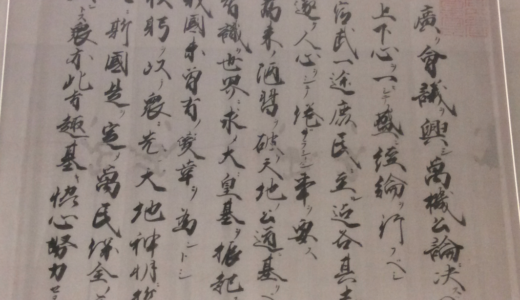 廣ク會議ヲ興シ萬機公論ニ決ス
上下心ヲ一ニシテ盛ニ經綸ヲ行フヘシ
官武一途庶民ニ至迄各其志
遂ケ人心ヲシテ倦マサラシメン事ヲ要ス
舊来ノ陋習ヲ破リ天地ノ公道ニ基クヘ
智識ヲ世界ニ求メ大ニ皇基ヲ振起
我國未曾有ノ變革ヲ為ントシ
躬ヲ以テ衆ニ先シ天地神明ニ誓
ニ斯國是ヲ定メ萬民保全ノ
衆亦此旨趣ニ基キ協心努力セ